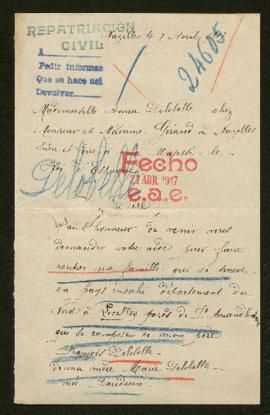 REPATRIACIÓN
CIVIL
Nazelles le 7 Avril
A
Pedir informes
Que se hace así
Devolver
24605
Mademoiselle Anna Delobelle chez
Monsieur et Madame Giraud à Nazelles
Indre et Loire Majesté le
Roi d'Espagne
Delobelle
Fecho
ABR. 1917
e.a.e.
Sire
J'ai l'honneur de venir vous
demander votre aide pour faire
rentrer ma famille qui se trouve
en pays envahi département du
Nord à Lecelles près de St Amand
qui se compose de mon père
François Delobelle
de ma mère Marie Delobelle
née